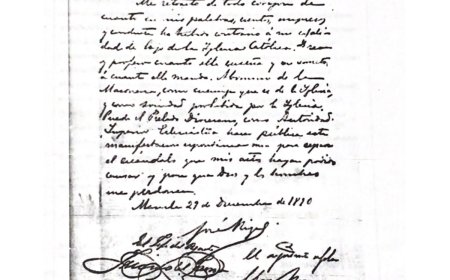 Me retracto de todo corazon de
cuanto en mis palabras, escritos, impresos
y conducta ha habido contrario á mi cali
dad de hijo de la Iglesia Católica. Creo
y profeso cuanto ella enseña y me someto
á cuanto ella manda. Abomino de la
Masoneria, como enemiga que es de la Iglesia,
y como sociedad prohibida por la Iglesia.
Puede el Prelado Diocesano, como Autoridad
Superior Eclesiástica hacer pública esta
manifestacion espontánea mia para reparar
el escándalo que mis actos hayan podido
causar y para que Dios y los hombres
me perdonen.
Manila 29 de Diciembre de 1890
José Rizal
El Jefe del
El ayudante de